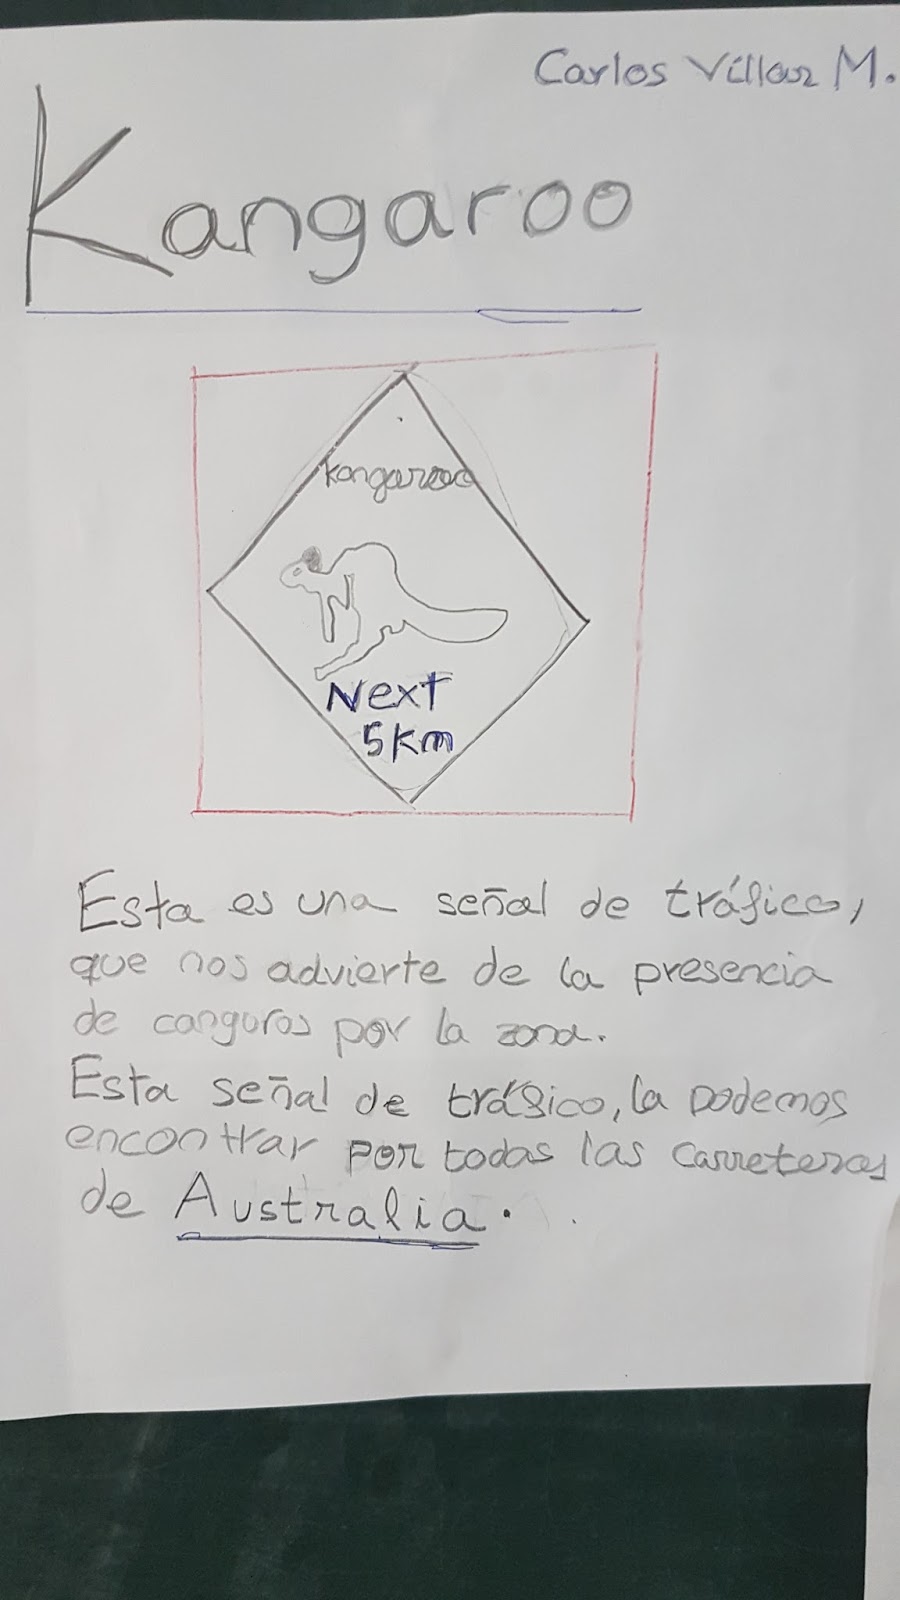 Carlos Villar M.
Kangaroo
kangaroo
Next
5km
Esta es una señal de tráfico,
que nos advierte de la presencia
de canguros por la zona.
Esta señal de tráfico, la podemos
encontrar por todas las carreteras
de Australia.